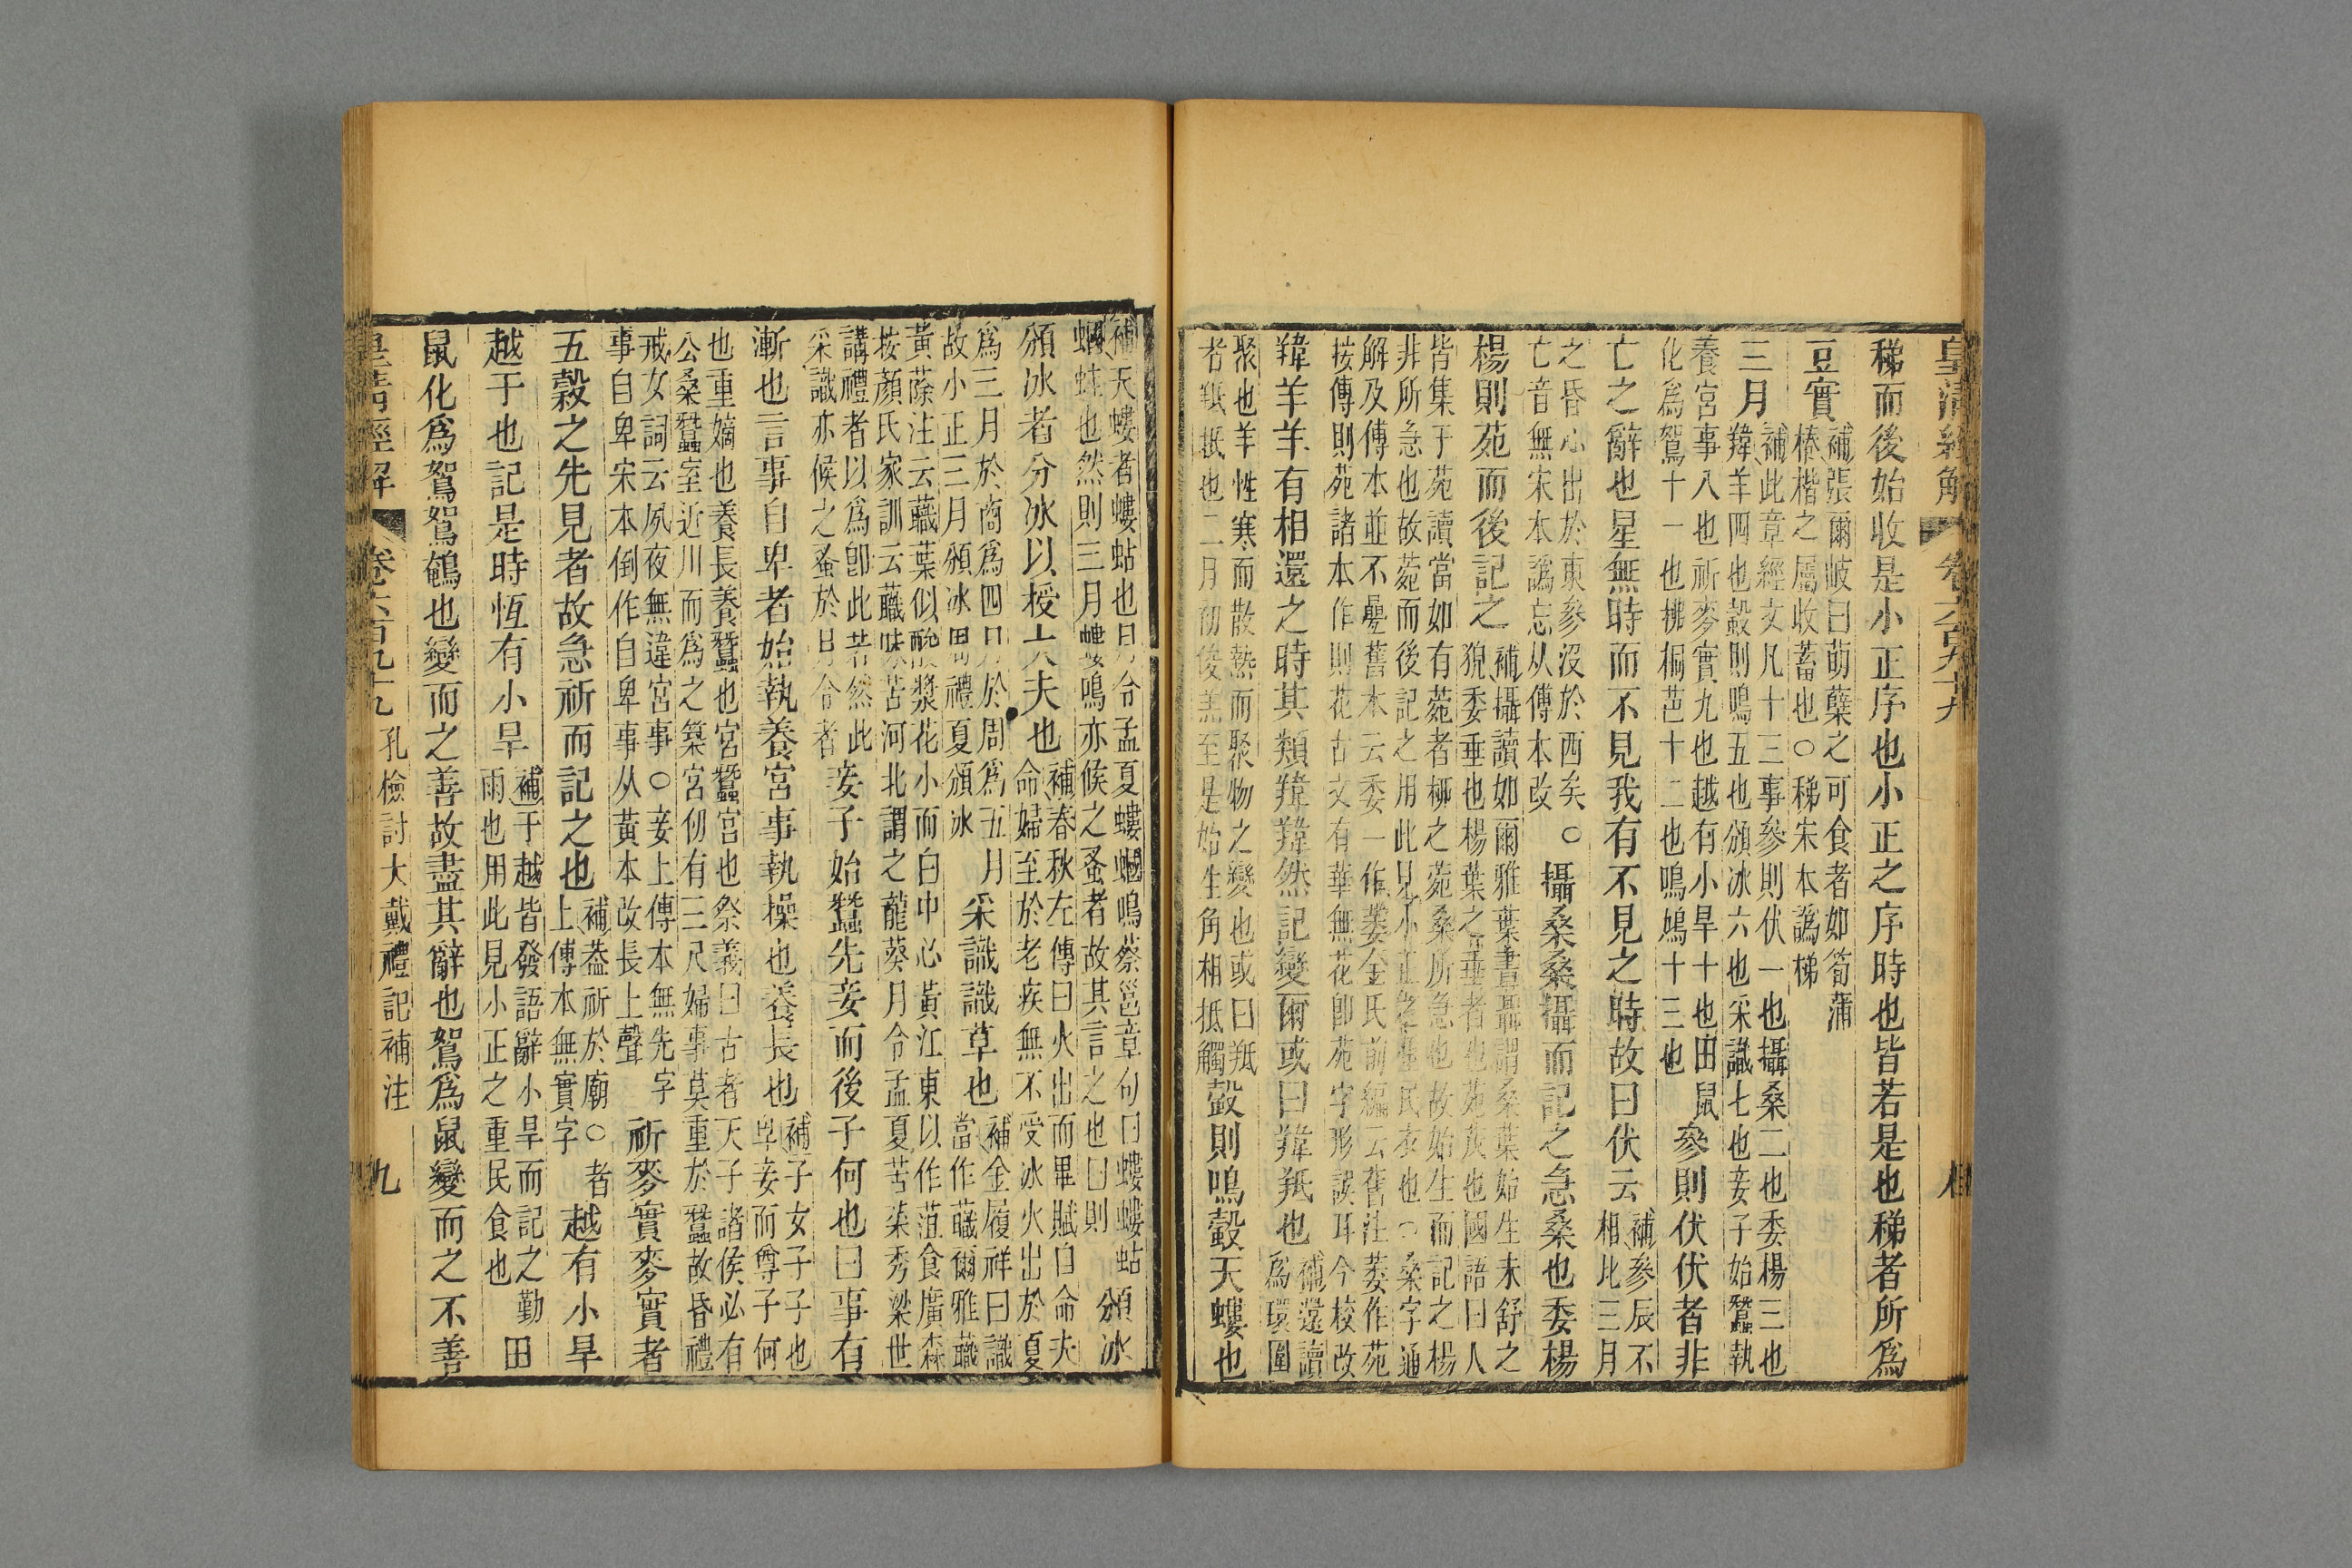 皇清經解 卷六百九十九 八
稊而後始收是小正序也小正之序時也皆若是也稊者所爲
豆實補張爾岐曰萌蘖之可食者如筍蒲
椿楷之屬收蓄也○稊宋本譌梯
三月補此章經文凡十三事參則伏一也攝桑二也委楊三也
羵羊四也縠則鳴五也頒冰六也采識七也妾子始蠶執
養宮事八也祈麥實九也越有小旱十也田鼠
化爲鴽十一也拂桐芭十二也鳴鳩十三也
參則伏伏者非
亡之辭也星無時而不見我有不見之時故曰伏云補參辰不
相比三月
之昏心出於東參沒於西矣○
亡音無宋本譌忘从傅本改
攝桑桑攝而記之急桑也委楊
楊則苑而後記之補攝讀如爾雅葉晝聶謂桑葉始生未舒之
猊委垂也楊葉之垂者也苑茂也國語曰人
皆集于苑讀當如有菀者柳之菀桑所急也故始生而記之楊
非所急也故菀而後記之用此見小正之重民衣也○桑字通
解及傅本並不疊舊本云委一作萎金氏前編云舊注萎作苑
按傳則苑諸本作則花古文有華無花卽苑字形誤耳今校改
羵羊羊有相還之時其類羵羵然記變爾或曰羵羝也補還讀
爲環圍
聚也羊性寒而散熱而聚物之變也或曰羝
者羝抵也二月初俊羔至是始生角相抵觸
縠則鳴縠天螻也
補天螻者螻蛄也月令孟夏螻蟈鳴蔡邕章句曰螻螻蛄
蟈蛙也然則三月螻鳴亦候之蚤者故其言之也曰則
頒冰
頒冰者分冰以授大夫也補春秋左傳曰火出而畢賦自命夫
命婦至於老疾無不受冰火出於夏
爲三月於商爲四月於周爲五月
故小正三月頒冰周禮夏頒冰
采識識草也補金履祥曰識
當作蘵爾雅蘵
黃蒢注云蘵葉似酸漿花小而白中心黃江東以作葅食廣森
按顏氏家訓云蘵味苦河北謂之龍葵月令孟夏苦菜秀梁世
講禮者以爲卽此若然此
采識亦候之蚤於月令者
妾子始蠶先妾而後子何也曰事有
漸也言事自卑者始執養宮事執操也養長也補子女子子也
卑妾而尊子何
也重嫡也養長養蠶也宮蠶宮也祭義曰古者天子諸侯必有
公桑蠶室近川而爲之築宮仞有三尺婦事莫重於蠶故昏禮
戒女詞云夙夜無違宮事○妾上傅本無先字
事自卑宋本倒作自卑事从黃本改長上聲
祈麥實麥實者
五穀之先見者故急祈而記之也補葢祈於廟○者
上傅本無實字
越有小旱
越于也記是時恆有小旱補于越皆發語辭小旱而記之勤
雨也用此見小正之重民食也
田
鼠化爲鴽鴽鵪也變而之善故盡其辭也鴽爲鼠變而之不善
皇清經解 卷六百九十九 孔檢討大戴禮記補注 九